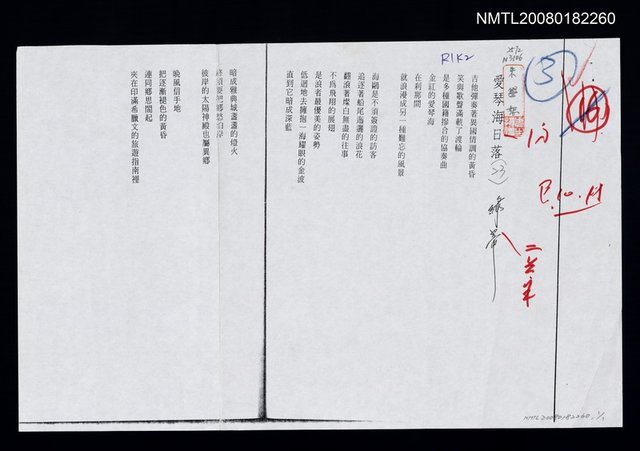 NMTL20080182260
R1K2
3
愛琴海日落(23)
吉他彈奏著異國情調的黃昏
笑與歌聲滿載了渡輪
是多種國籍摻合的協奏曲
金紅的愛琴海
在利那間
就浪漫成另一種難忘的風景
海鷗是不須簽證的訪客
追逐著船尾洶湧的浪花
翻滾著燦白無盡的往事
不為飛翔的展翅
是浪者最優美的姿勢
低迴地去擁抱一海耀眼的金波
直到它暗成深藍
暗成雅典城盞盞的燈火
彼岸的太陽神殿也屬異鄉
晚風信手地
把逐漸褪色的黃昏
連同鄉思闔起
夾在印滿希臘文的旅遊指南裡
NMTL20080182260, 1/1